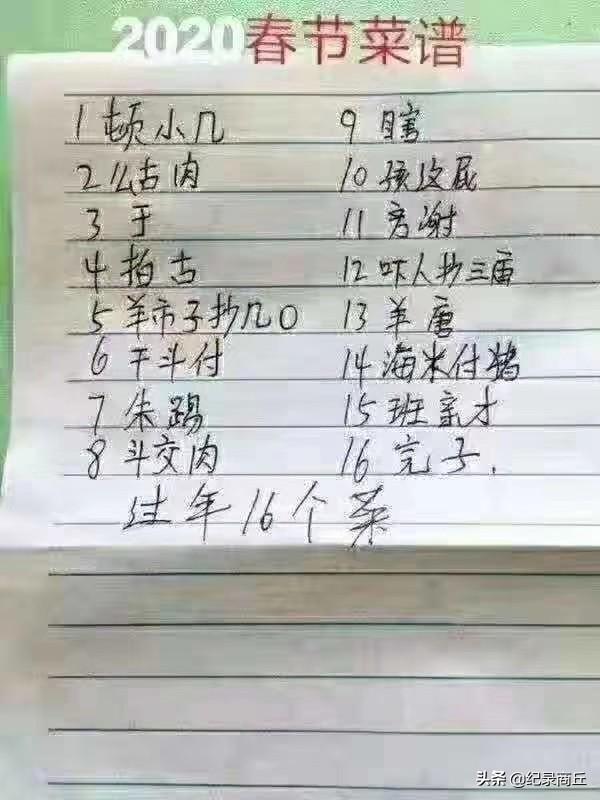 2020春节菜谱
1 顿小几
2 么古肉
3 于
4 拍古
5 羊市子抄几0
6 干斗付
7 朱踢
8 斗交肉
9 瞎
10 孩皮屁
11 旁谢
12 吓人抄三亩
13 羊唐
14 海米付猪
15 班亲才
16 完子.
过年16个菜
头条@纪录商丘